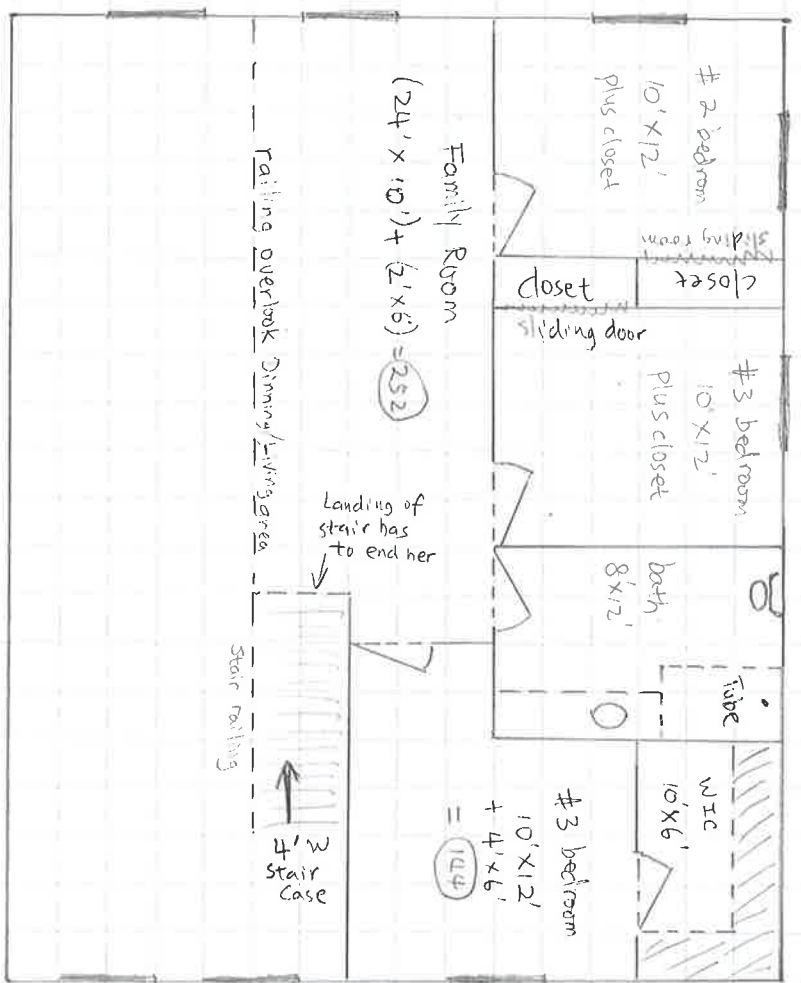 # 2 bedrom
10' x 12'
plus closet
sliding room
closet
closet
sliding door
#3 bedroom
10' x 12'
plus closet
Family Room
(24' x 10') + (2' x 6') = 252
railing overlook Dinning/Living area
Landing of
stair has
to end her
bath
8' x 12'
Tube
Stair railing
4' W
Stair
Case
#3 bedroom
10' x 12'
+ 4' x 6'
= 144
WIC
10' x 6'